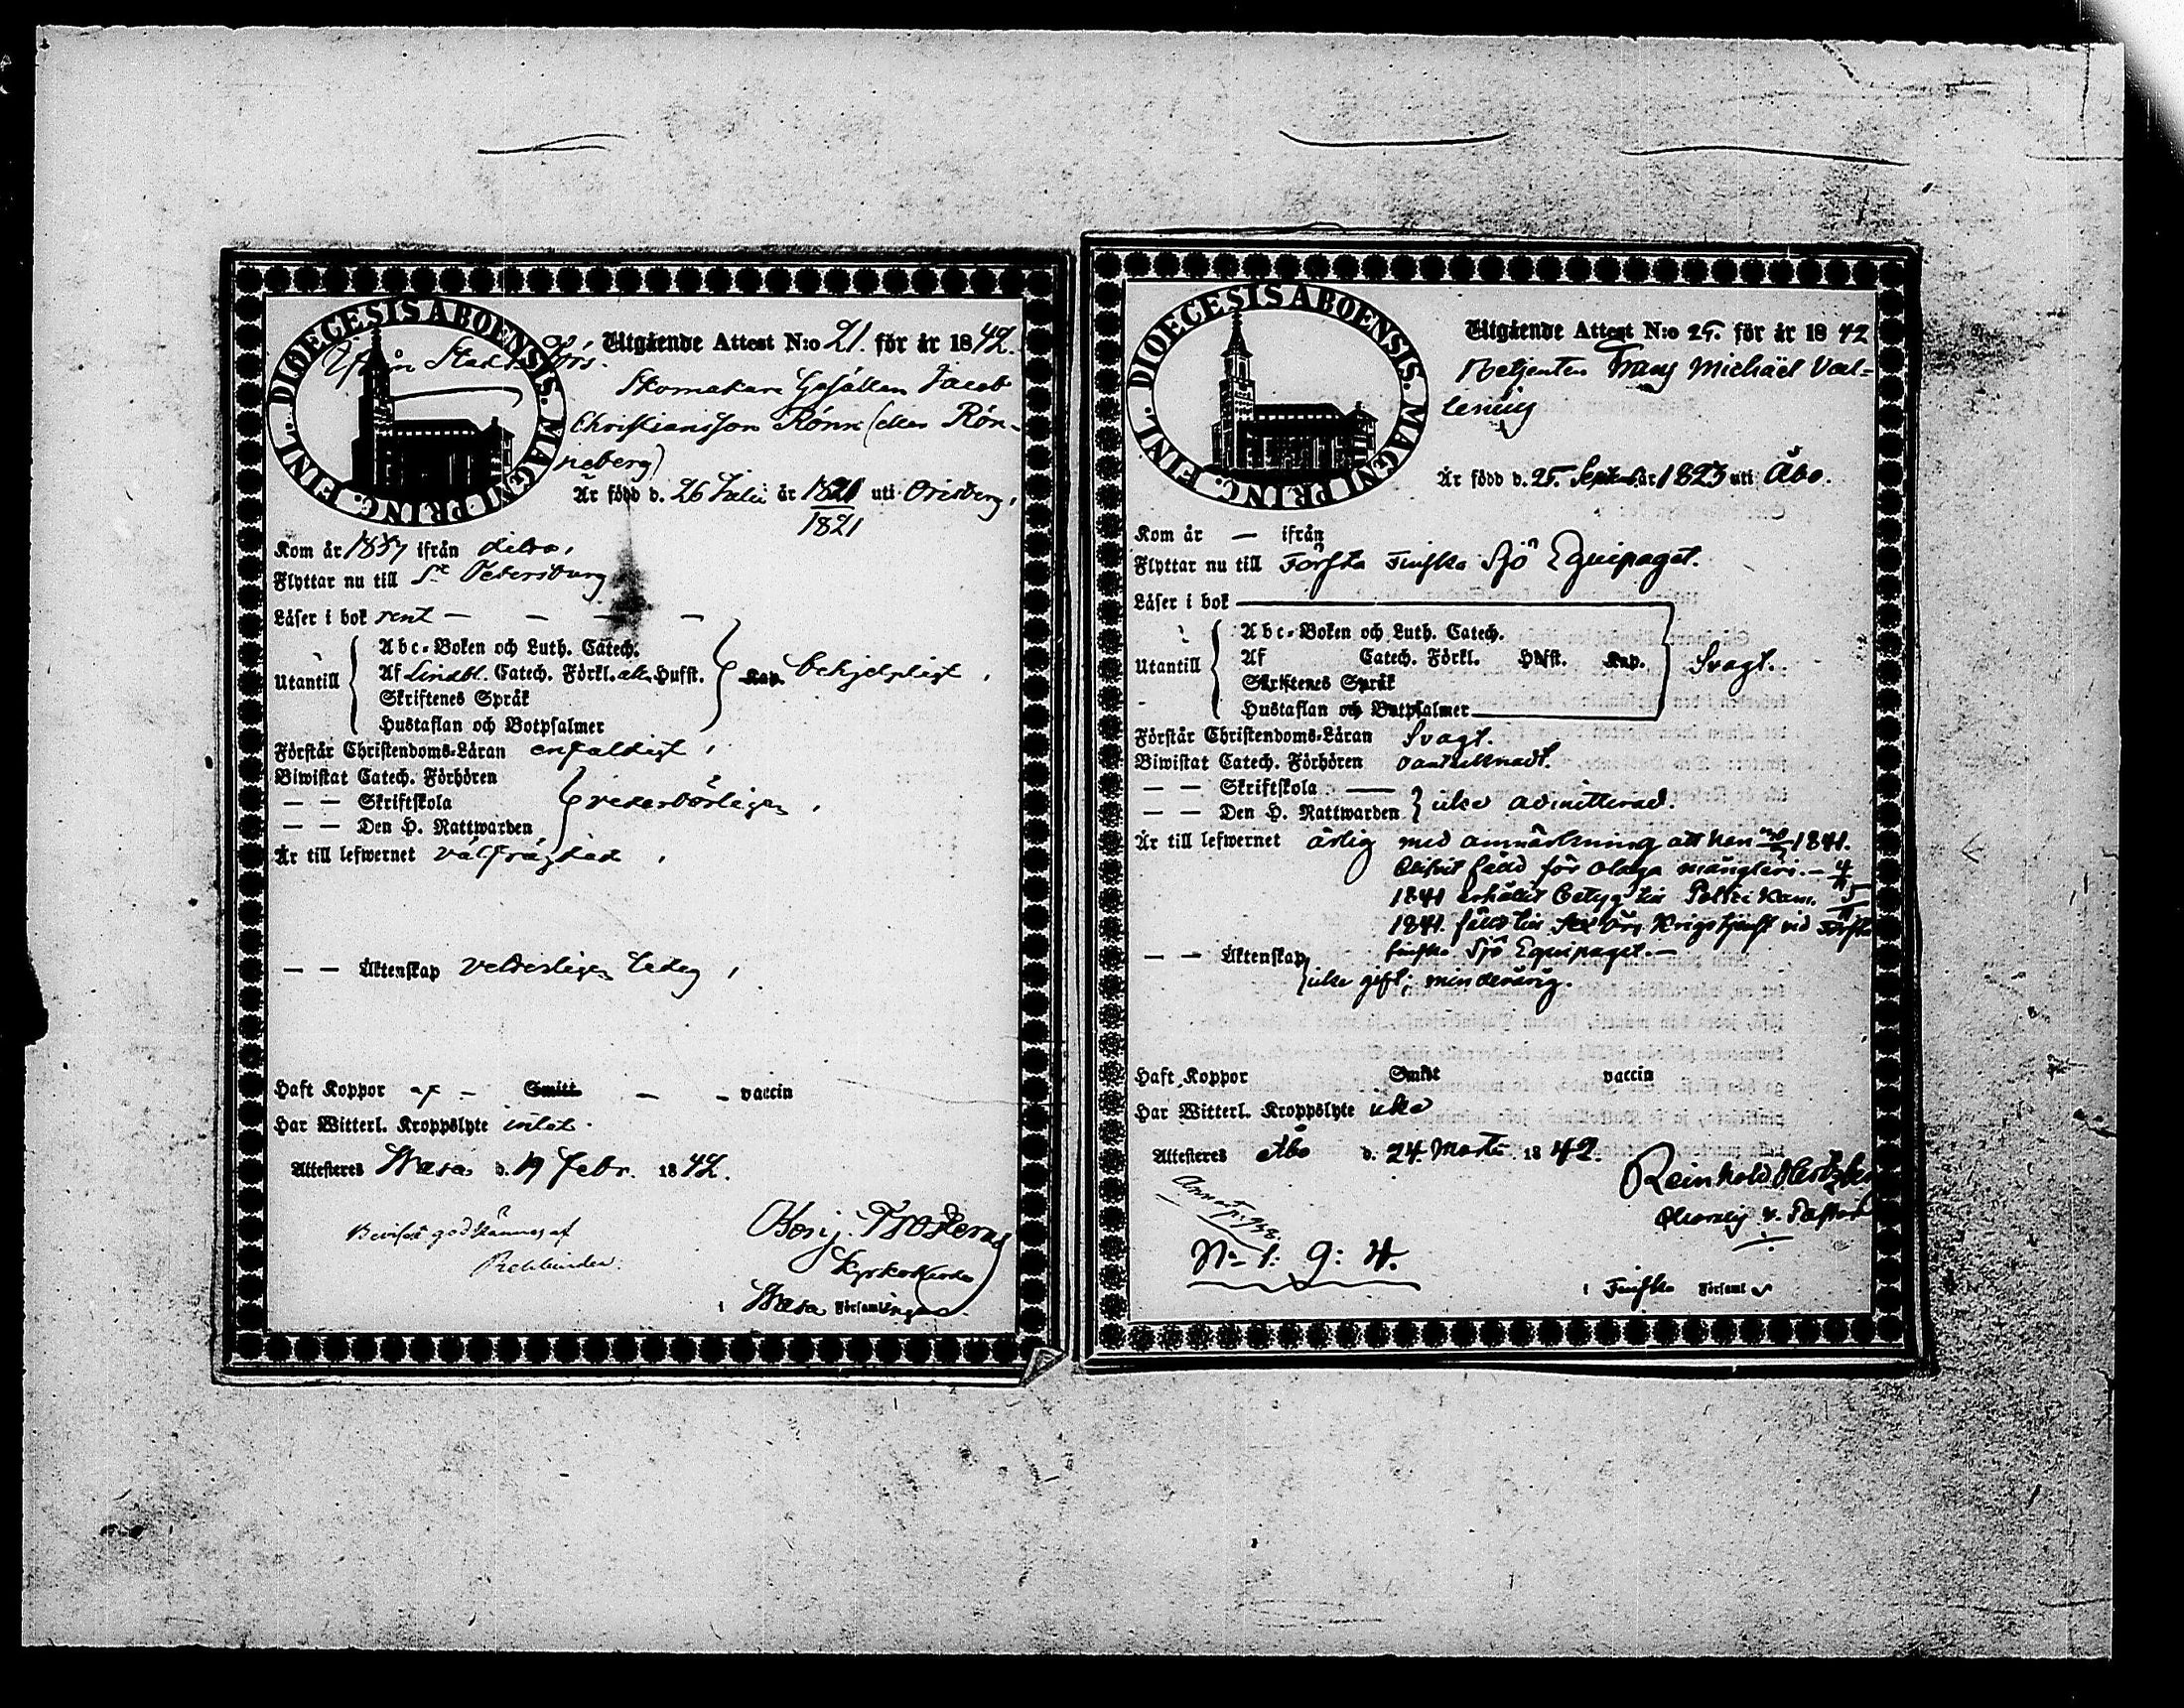 DIOECESIS ABOENSIS. MAGNI PRINC. FINL.
Utgående Attest N:o 21. för år 1842.
Skomakare Gesällen Jacob
Christiansson Rönn (eller Rön-
neberg)
Är född d. 26 Julii år 1821 uti Orisberg,
1821
Kom år 1837 ifrån
Flyttar nu till St Petersburg
Läser i bok rent — — — —
Utantill
Abc-Boken och Luth. Catech.
Af Lindbl. Catech. Förkl. alla Hufst. Kap. behjelpligt,
Skriftenes Språk
Hustaflan och Botpsalmer
Förstår Christendoms-Läran enfaldigt,
Biwistat Catech. Förhören
— — Skriftskola vederbörligen,
— — Den H. Nattwarden
Är till lefwernet välfrägdad,
— — Äktenskap veterligen ledig,
Haft Koppor af — Smitt — — vaccin
Har Witterl. Kroppslyte intet.
Attesteras Wasa d. 19 Febr. 1842.
Beviset godkännes af
Rehbinder.
Benj. Frosterus
Kyrkoherde
i Wasa Församlingar.
DIOECESIS ABOENSIS. MAGNI PRINC. FINL.
Utgående Attest N:o 25. för år 1842
Betjenten Frans Michaël
Är född d. 25. Septemb. år 1823 uti Åbo.
Kom år — ifrån
Flyttar nu till Första Finska Sjö Equipaget.
Läser i bok
Utantill
Abc-Boken och Luth. Catech.
Af Catech. Förkl. Hufst. Kap. Svagt.
Skriftenes Språk
Hustaflan och Botpsalmer
Förstår Christendoms-Läran Svagt.
Biwistat Catech. Förhören oanteknadt.
— — Skriftskola —
— — Den H. Nattwarden icke admitterad.
Är till lefwernet ärlig med anmärkning att han 1841.
blifvit fälld för olaga mångleri. —
1841 erhållit betyg till Politi Kam.
1841. fälld till sex års Krigstjenst vid Första
finska Sjö Equipaget. —
— — Äktenskap
icke gift; minderårig.
Haft Koppor Smitt vaccin
Har Witterl. Kroppslyte icke
Attesteras Åbo d. 24 Martii 1842.
Reinhold
v. Pastor
Annot. p. 948.
N:o 1: 9: 4.
i Finska Församl